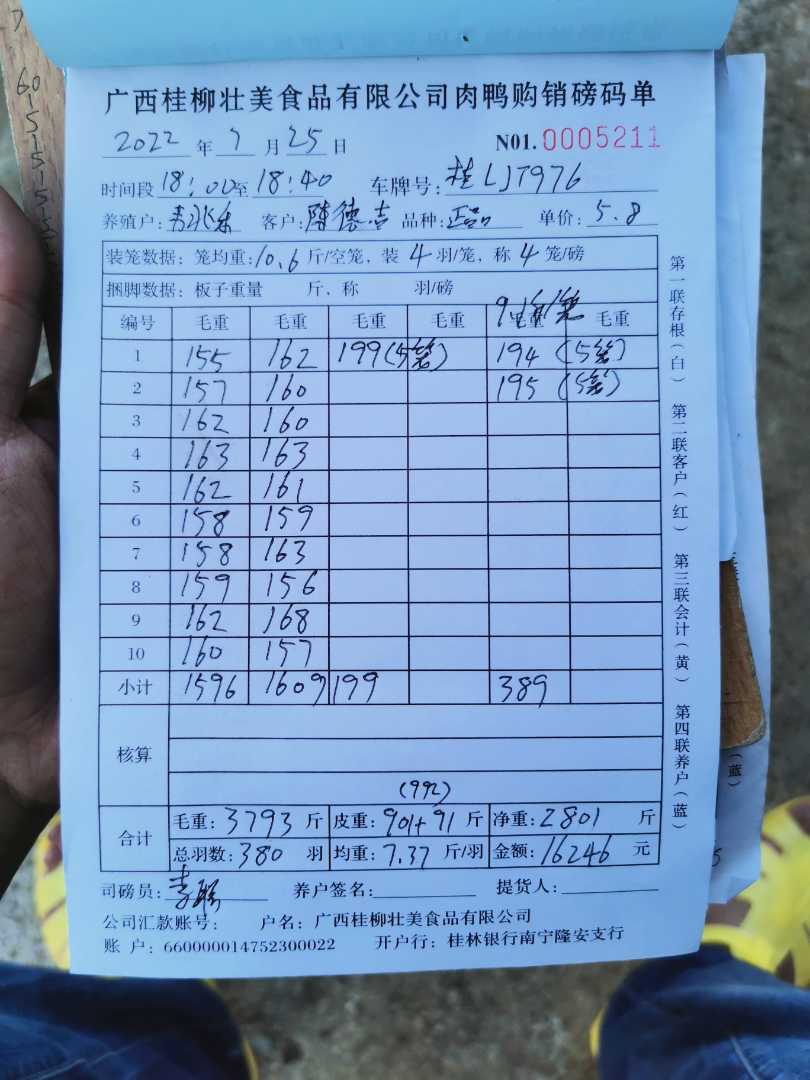 广西桂柳壮美食品有限公司肉鸭购销磅码单
2022 年 7 月 25 日 N01. 0005211
时间段 18:00 至 18:40 车牌号: 桂LJT976
养殖户: 客户: 陈德吉 品种: 正品 单价: 5.8
装笼数据: 笼均重: 10.6 斤/空笼, 装 4 羽/笼, 称 4 笼/磅
捆脚数据: 板子重量 斤, 称 羽/磅
编号 毛重 毛重 毛重 毛重 毛重 毛重
1 155 162 199(5笼) 194 (5笼)
2 157 160 195 (5笼)
3 162 160
4 163 163
5 162 161
6 158 159
7 158 163
8 159 156
9 162 168
10 160 157
小计 1596 1609 199 389
核算
(992)
合计 毛重: 3793 斤 皮重: 901+91 斤 净重: 2801 斤
总羽数: 380 羽 均重: 7.37 斤/羽 金额: 16246 元
司磅员: 养户签名: 提货人:
公司汇款账号: 户名: 广西桂柳壮美食品有限公司
账 户: 660000014752300022 开户行: 桂林银行南宁隆安支行
第一联存根(白) 第二联客户(红) 第三联会计(黄) 第四联养户(蓝)
(蓝)
60